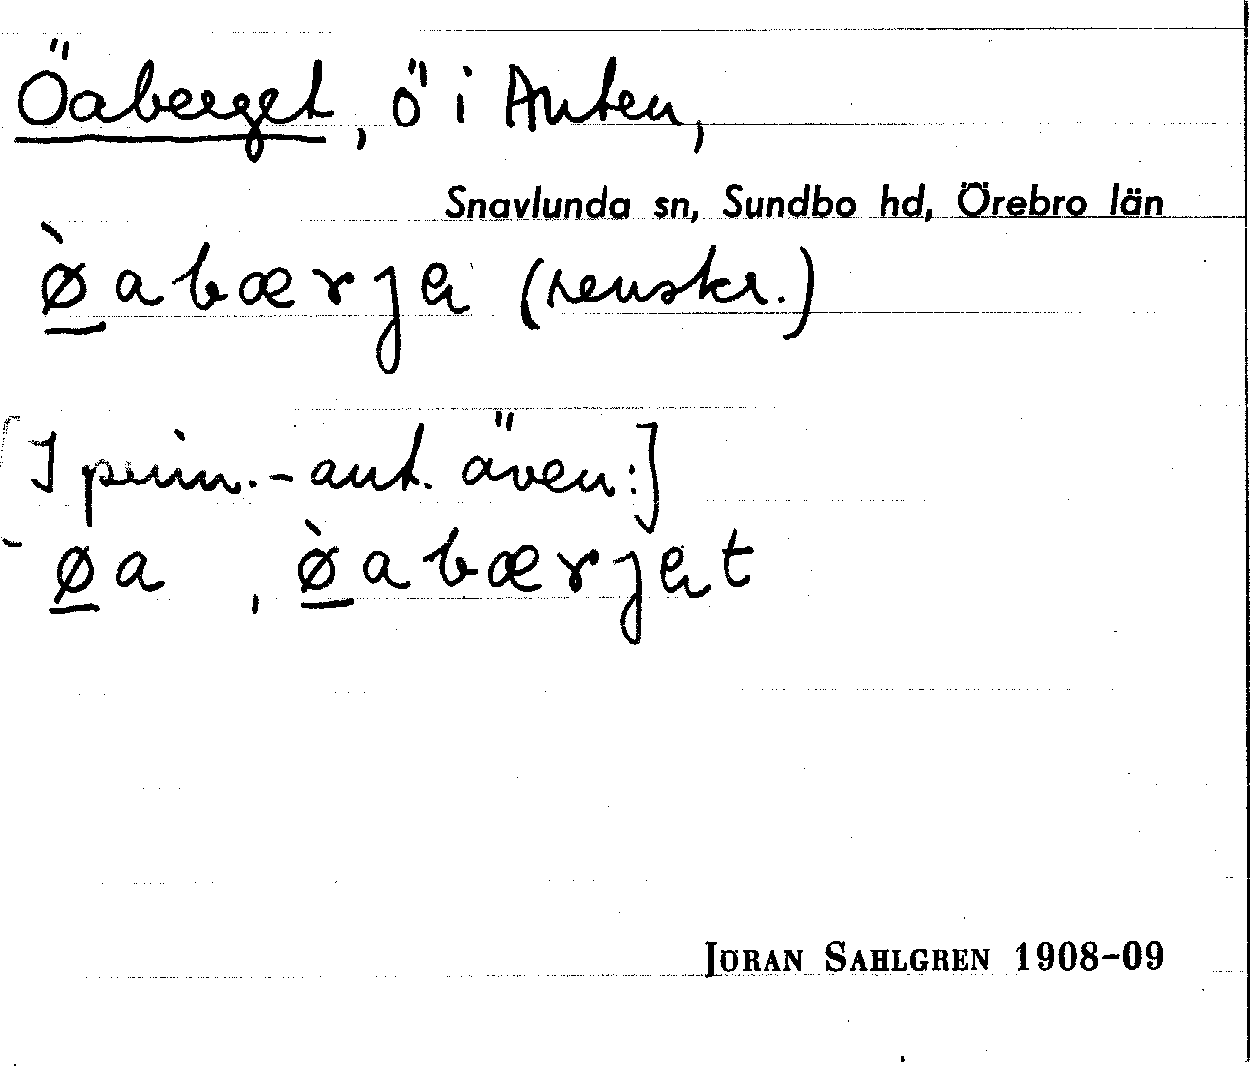 Öaberget, ö i Anten,
Snavlunda sn, Sundbo hd, Örebro län
ø̀abærja (renskr.)
[I prim.-ant. även:]
øa, ø̀abærjat
JÖRAN SAHLGREN 1908-09